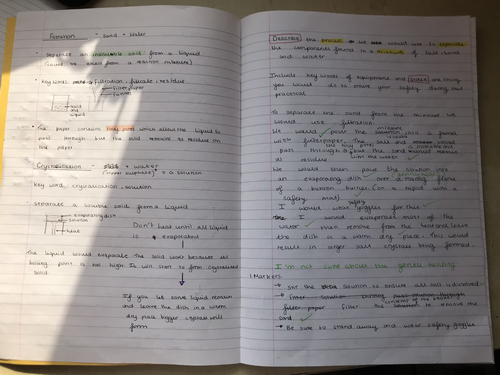 Filtration - Sand + Water
Separate an insoluble solid from a liquid
Key words filtration, filtrate, residue
filter paper
funnel
Sand and
liquid
The paper contains tiny pores which allow the liquid to
pass through but the solid remains as residue on
the paper
Crystallisation - salt + water
= a solution
Key word, crystallisation, solution
separate a soluble solid from a liquid
evaporating dish
solution
heat
Don't heat until all liquid
is evaporated
The liquid would evaporate the solid won't because its
boiling point is not high. It will start to form crystallised
solid
If you let some liquid remain
and leave the dish in a warm
dry place bigger crystals will
form
Describe the process we would use to separate
the components found in a mixture of salt, sand
and water
Include key words of equipment and state one thing
you would do to ensure your safety during this
practical
To separate the sand from the mixture we
would use filtration.
We would pour the mixture into a funnel
with filter paper. The salt and water would
pass through but the sand would remain
as residue
We would then pour the solution into
an evaporating dish over a strong flame
of a bunsen burner (on a tripod with a
safety mat)
I would wear safety goggles for this
I would evaporate most of the
water, then remove from the heat and leave
the dish in a warm dry place. This would
result in larger salt crystals being formed.
I'm not sure about the gently heating
Markers
→ Stir the solution to ensure all salt is dissolved
filter paper filter the solution to remove the
sand
→ Be sure to stand away and wear safety goggles